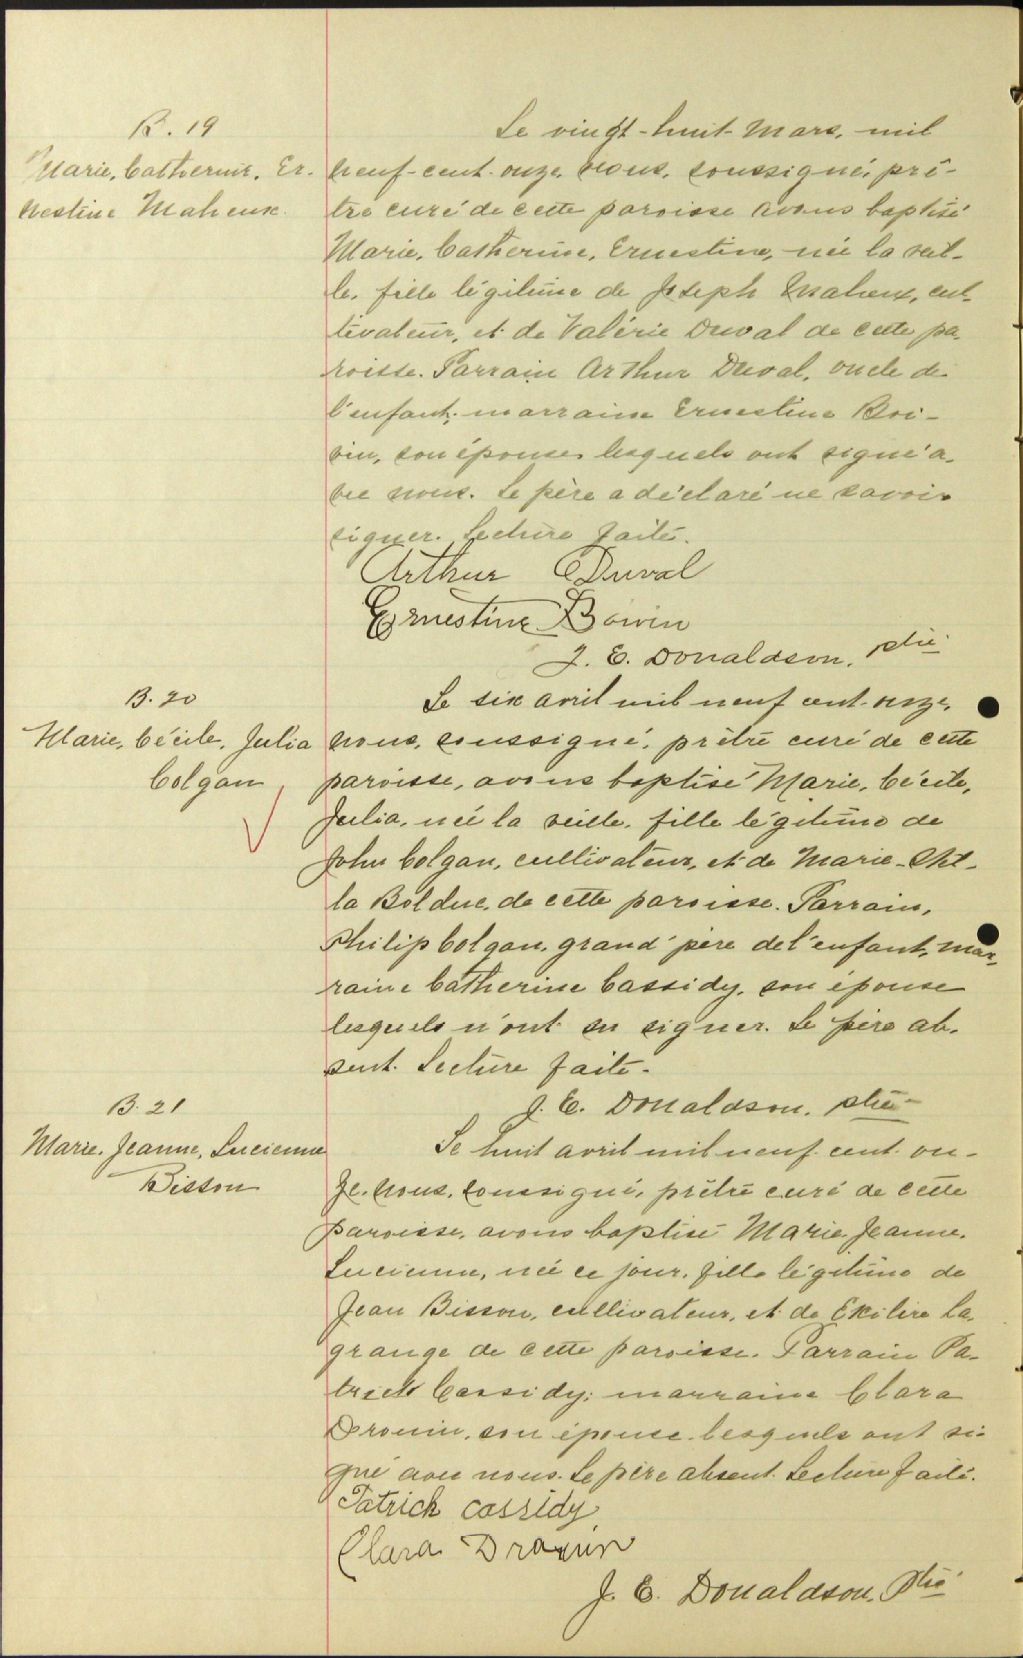 B. 19
Marie, Catherine, Er-
nestine Maheux.
Le vingt-huit Mars, mil
neuf-cent-onze, nous, soussigné, prê-
tre curé de cette paroisse avons baptisé
Marie, Catherine, Ernestine, née la veil-
le, fille légitime de Joseph Maheux, cul-
tivateur, et de Valérie Duval de cette pa-
roisse. Parrain Arthur Duval, oncle de
l'enfant; marraine Ernestine Boi-
vin, son épouse, lesquels ont signé a-
vec nous. Le père a déclaré ne savoir
signer. Lecture faite.
Arthur Duval
Ernestine Boivin
J. E. Donaldson, ptre
B. 20
Marie, Cécile, Julia
Colgan
Le six avril mil neuf cent-onze,
nous, soussigné, prêtre curé de cette
paroisse, avons baptisé Marie, Cécile,
Julia, née la veille, fille légitime de
John Colgan, cultivateur, et de Marie-
la Bolduc, de cette paroisse. Parrain,
Philip Colgan, grand'père de l'enfant, mar-
raine Catherine Cassidy, son épouse
lesquels n'ont su signer. Le père ab-
sent. Lecture faite.
J. E. Donaldson, ptre
B. 21
Marie, Jeanne, Lucienne
Bisson
Le huit avril mil neuf cent on-
ze, nous, soussigné, prêtre curé de cette
paroisse, avons baptisé Marie Jeanne,
Lucienne, née ce jour, fille légitime de
Jean Bisson, cultivateur, et de Exilire La-
grange de cette paroisse. Parrain Pa-
trick Cassidy; marraine Clara
Drouin, son épouse lesquels ont si-
gné avec nous. Le père absent. Lecture faite.
Patrick Cassidy
Clara Drouin
J. E. Donaldson, ptre